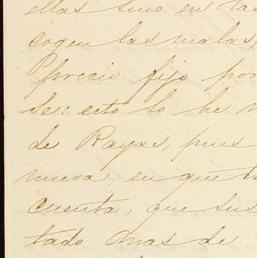 ellas sino en las
cogen las malas,
Precio fijo por
se: esto lo he
de Rayas, pues
nueva, en que
cuenta, que sus
tado Mas de